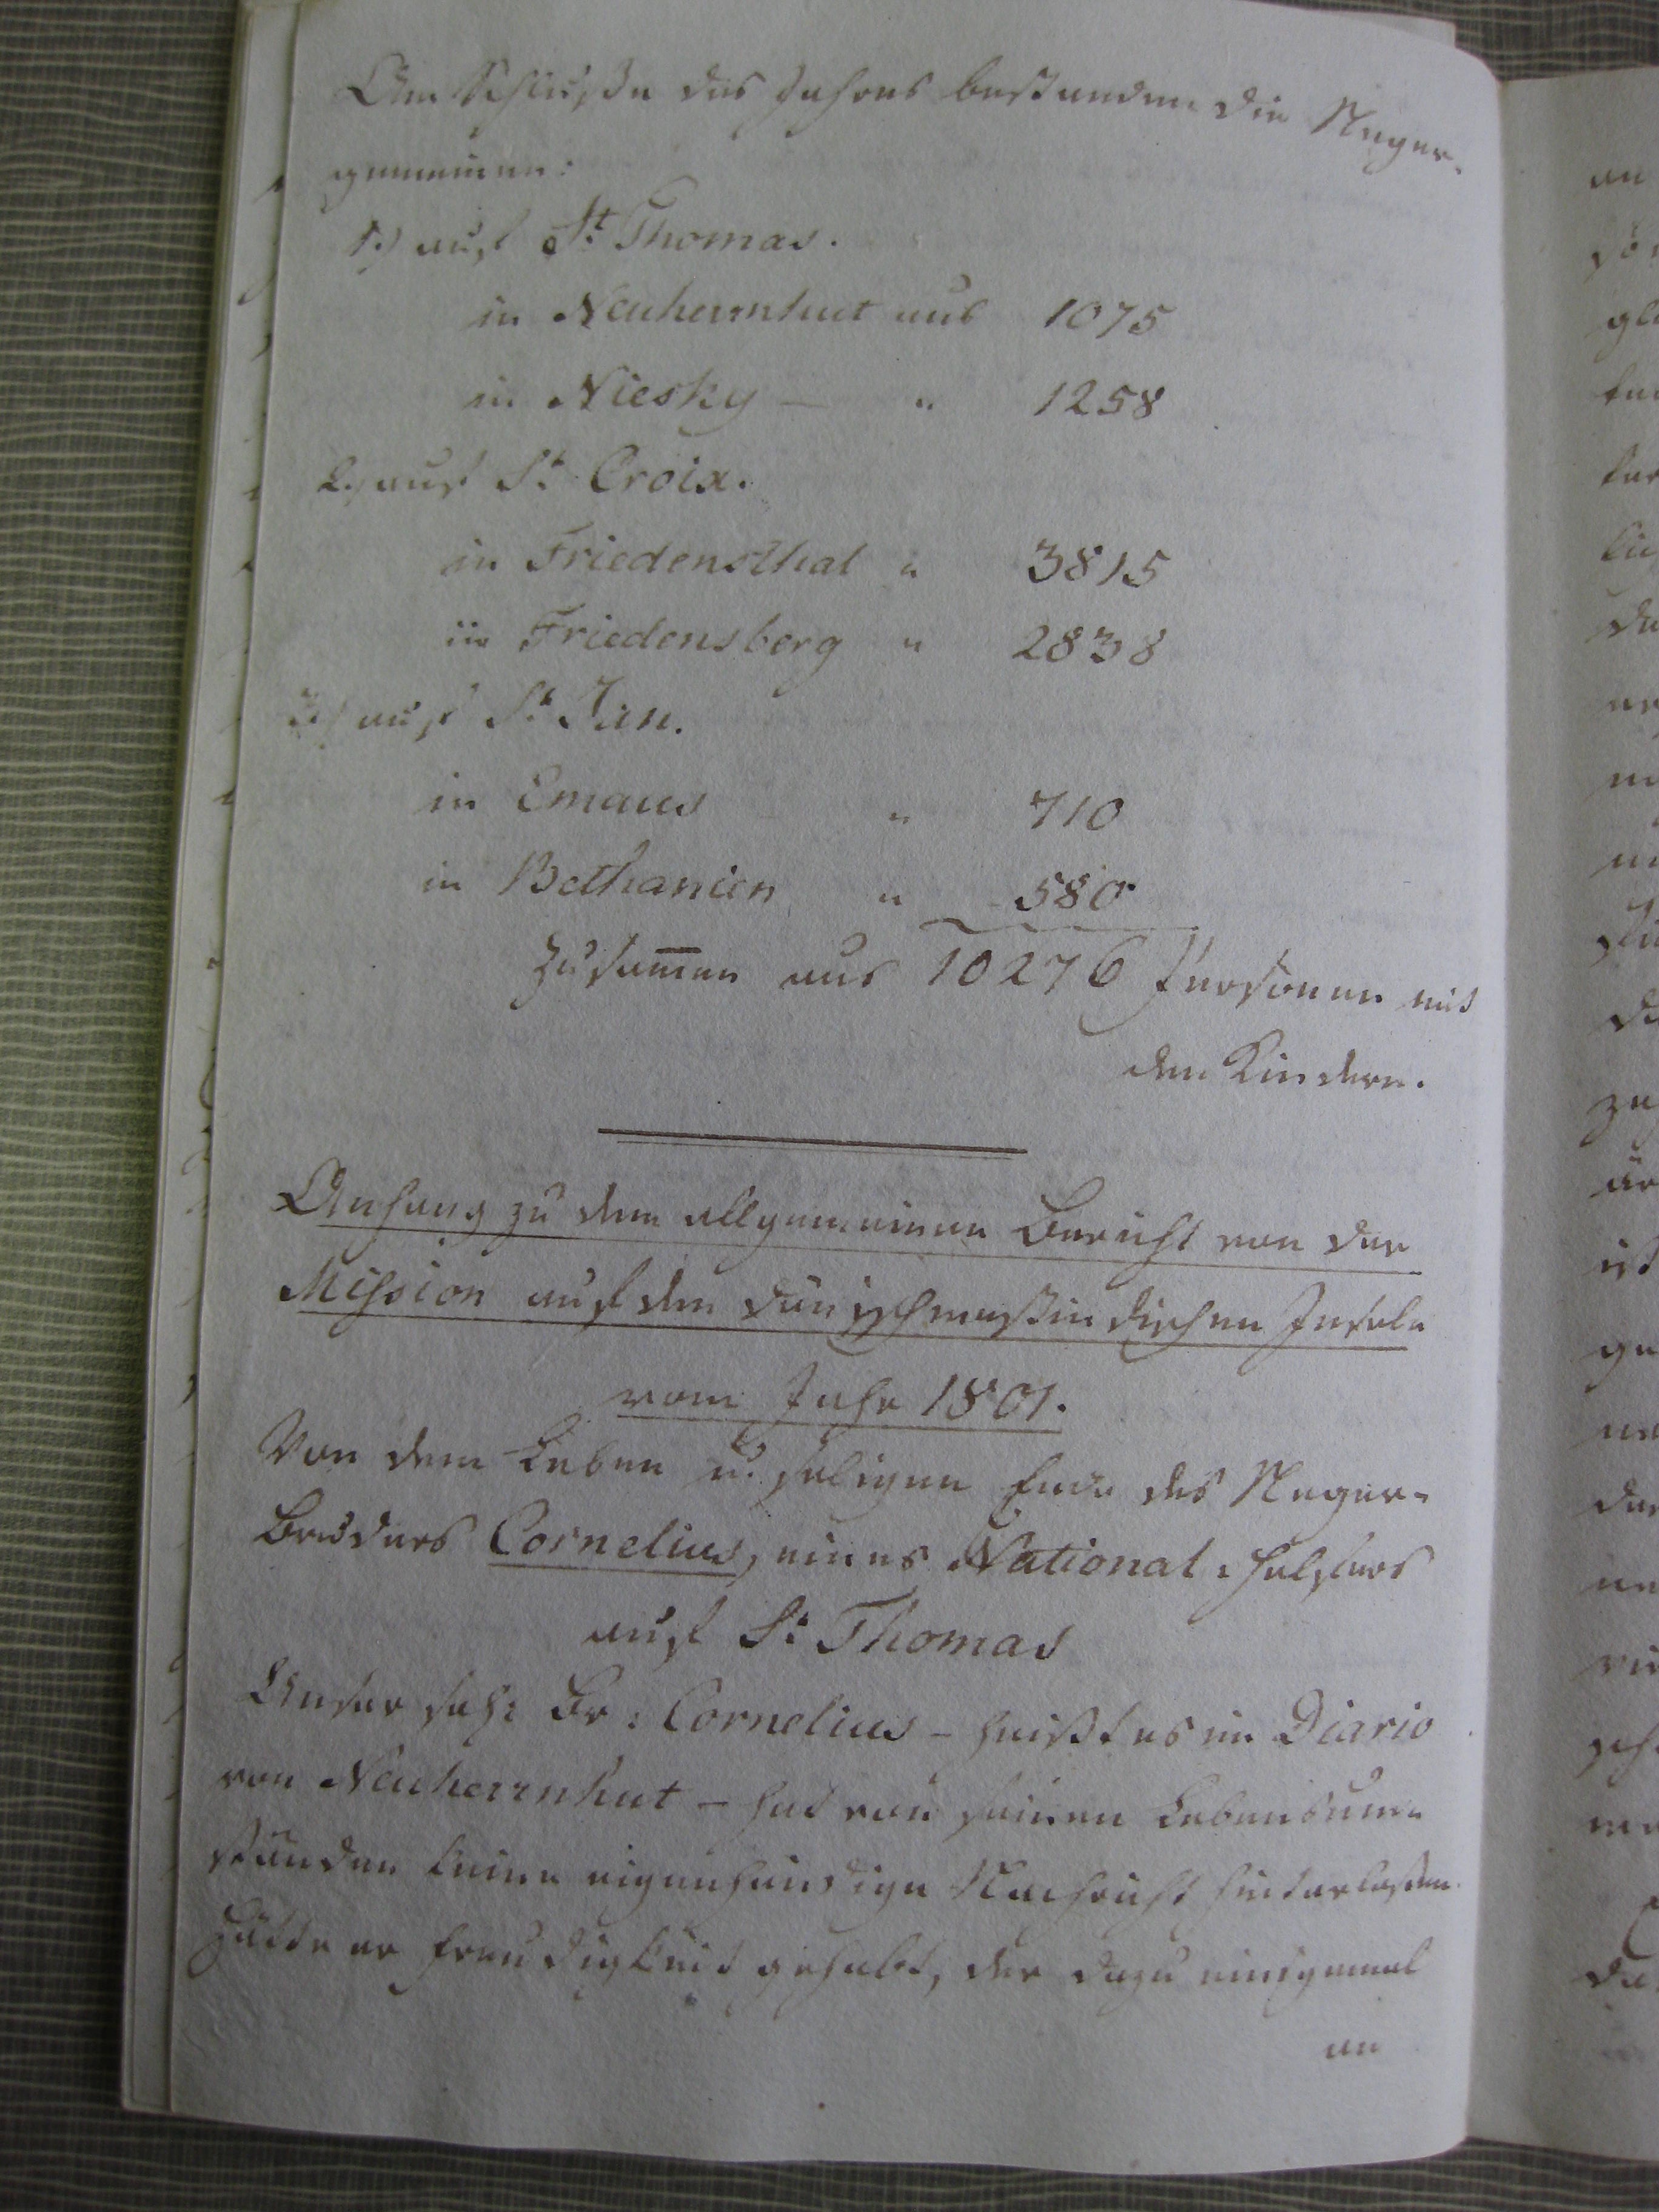 Am Schluße des Jahres bestanden die Neger-
gemeinen:
1.) auf St. Thomas.
in Neuherrnhut aus 1075
in Niesky — " 1258
2.) auf St. Croix.
in Friedensthal " 3815
in Friedensberg " 2838
3.) auf St. Jan.
in Emaus " 710
in Bethanien " 580
Zusam̅en aus 10276 Personen mit
den Kindern.
Anhang zu dem allgemeinen Bericht von der
Mission auf den dänischwestindischen Inseln
vom Jahr 1801.
Von dem Leben u. seligen Ende des Neger-
Bruders Cornelius, eines National-Helfers
auf St. Thomas
Unser sel: Br: Cornelius – heißt es im Diario
von Neuherrnhut – hat von seinen Lebensum-
ständen keine eigenhändige Nachricht hinterlaßen.
Hätte er Freudigkeit gehabt, der dazu einigemal
an